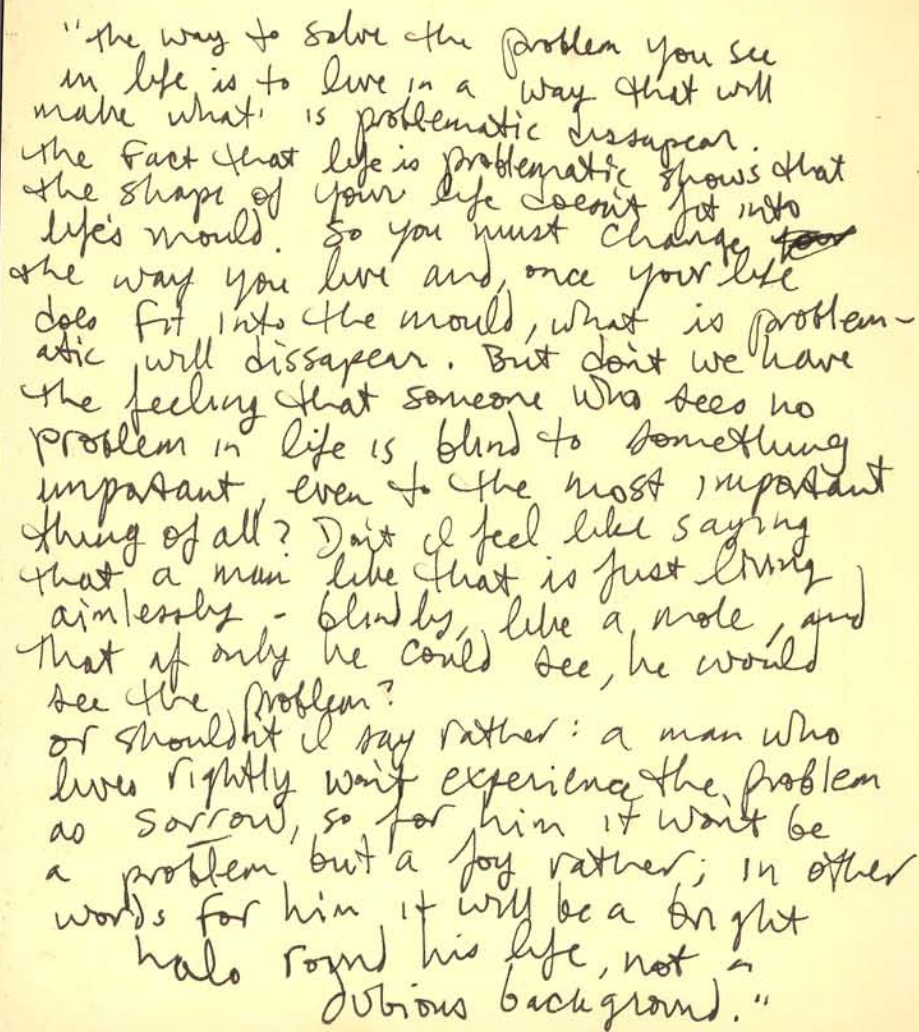 "the way to solve the problem you see
in life is to live in a way that will
make what is problematic dissapear.
the fact that life is problematic shows that
the shape of your life doesn't fit into
life's mould. So you must change
the way you live and, once your life
does fit into the mould, what is problem-
atic will dissapear. But don't we have
the feeling that someone who sees no
problem in life is blind to something
important, even to the most important
thing of all? Don't I feel like saying
that a man like that is just living
aimlessly - blindly, like a mole, and
that if only he could see, he would
see the problem?
or shouldn't I say rather: a man who
lives rightly won't experience the problem
as sorrow, so for him it won't be
a problem but a joy rather; in other
words for him it will be a bright
halo round his life, not a
dubious background."